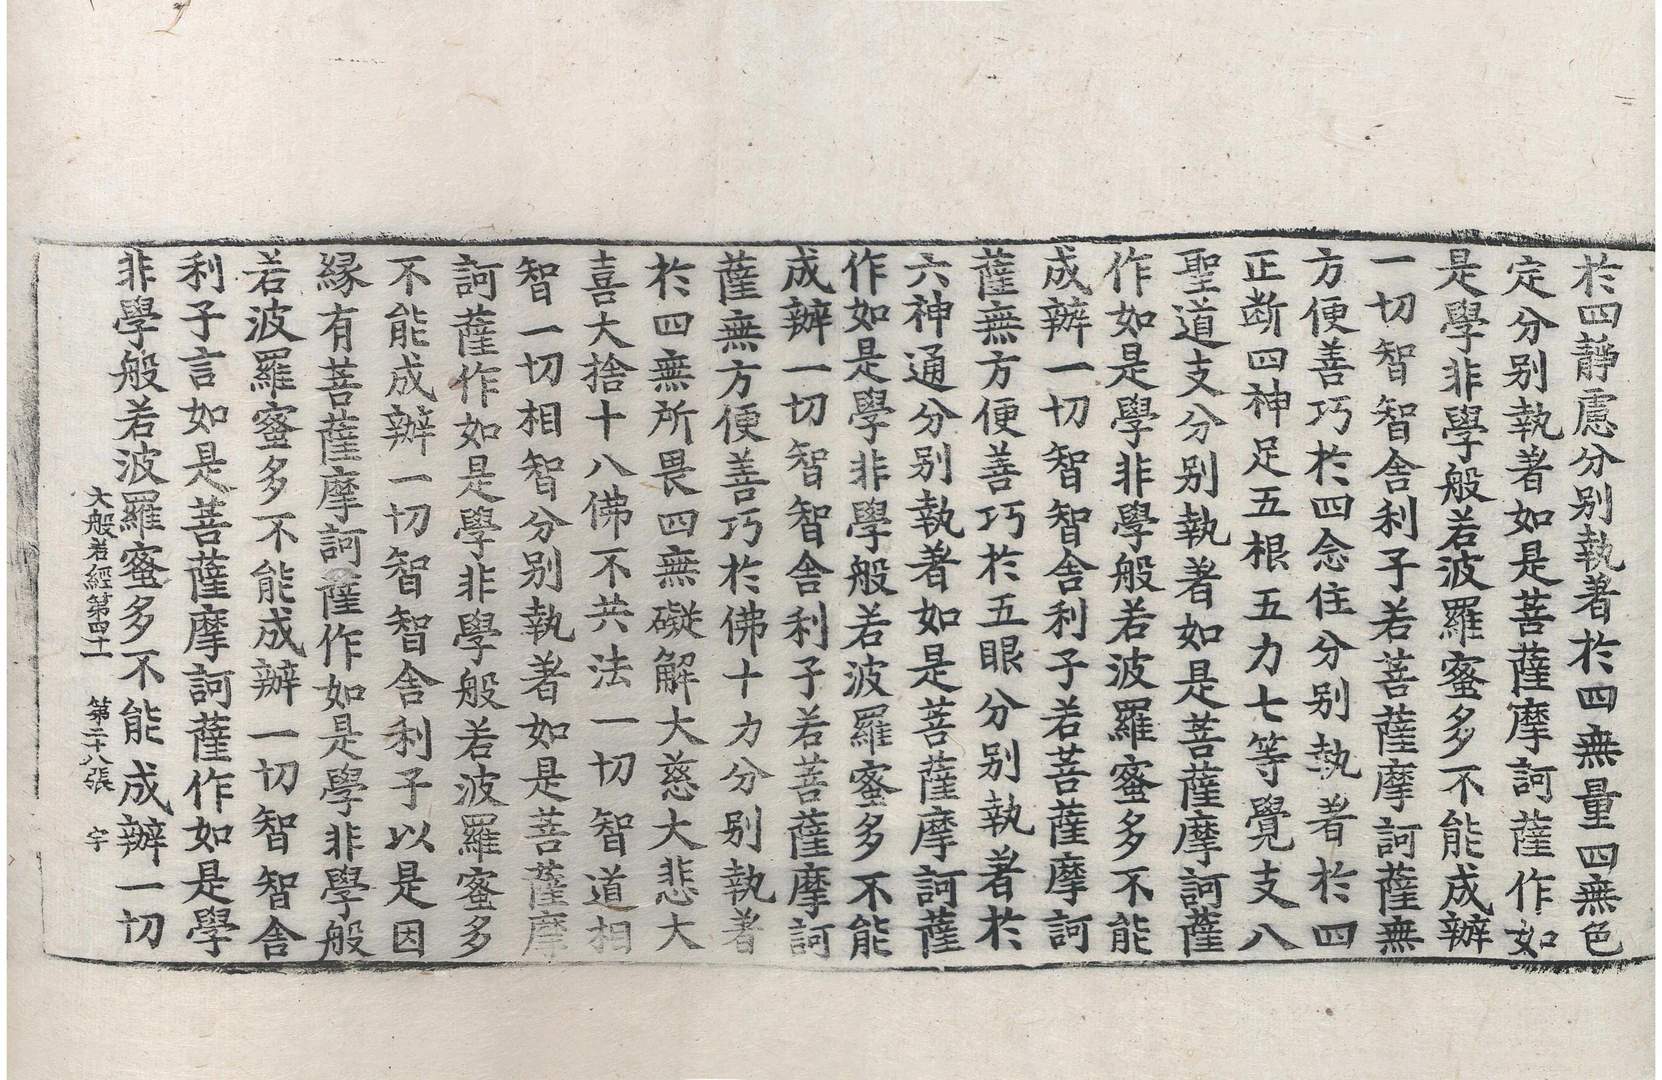 於四靜慮分别執著於四無量四無色
定分别執著如是菩薩摩訶薩作如
是學非學般若波羅蜜多不能成辦
一切智智舍利子若菩薩摩訶薩無
方便善巧於四念住分别執著於四
正断四神足五根五力七等覺支八
聖道支分别執著如是菩薩摩訶薩
作如是學非學般若波羅蜜多不能
成辦一切智智舍利子若菩薩摩訶
薩無方便善巧於五眼分别執著於
六神通分别執著如是菩薩摩訶薩
作如是學非學般若波羅蜜多不能
成辦一切智智舍利子若菩薩摩訶
薩無方便善巧於佛十力分别執著
於四無所畏四無礙解大慈大悲大
喜大捨十八佛不共法一切智道相
智一切相智分别執著如是菩薩摩
訶薩作如是學非學般若波羅蜜多
不能成辦一切智智舍利子以是因
緣有菩薩摩訶薩作如是學非學般
若波羅蜜多不能成辦一切智智舍
利子言如是菩薩摩訶薩作如是學
非學般若波羅蜜多不能成辦一切
大般若經第四十一 第二十八張 宇